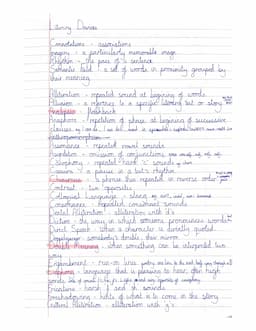 Literary Devices
Connotations - associations
Imagery - a particularly memorable image
Rhythm - the pace of a sentence
Semantic field - a set of words in proximity grouped by
their meaning
Alliteration - repeated sound at beginning of words
Allusion - a reference to a specific literary text or story
Analepsis - flashback
Anaphora - repetition of phrase at beginning of successive
clauses
anthropomorphism
Assonance - repeated vowel sounds
Asyndeton - omission of conjunctions
Cacophony - repeated harsh 'c' sounds
Caesura - a pause in a line's rhythm
Chiasmus - a phrase that is repeated in reverse order
Contrast - two opposites
Colloquial Language - slang
Consonance - repeated consonant sounds
Dental Alliteration - alliteration with d's
Diction - the way in which someone pronounces words
Direct Speech - when a character is directly quoted
Doppelganger - somebody's double, their mirror
Double Meaning - when something can be interpreted two
ways
Enjambement - run-on lines
Euphony - language that is pleasing to hear, often high
sounds
Fricatives - harsh f and th sounds
Foreshadowing - hints of what is to come in the story
Guttural Alliteration - alliteration with g's